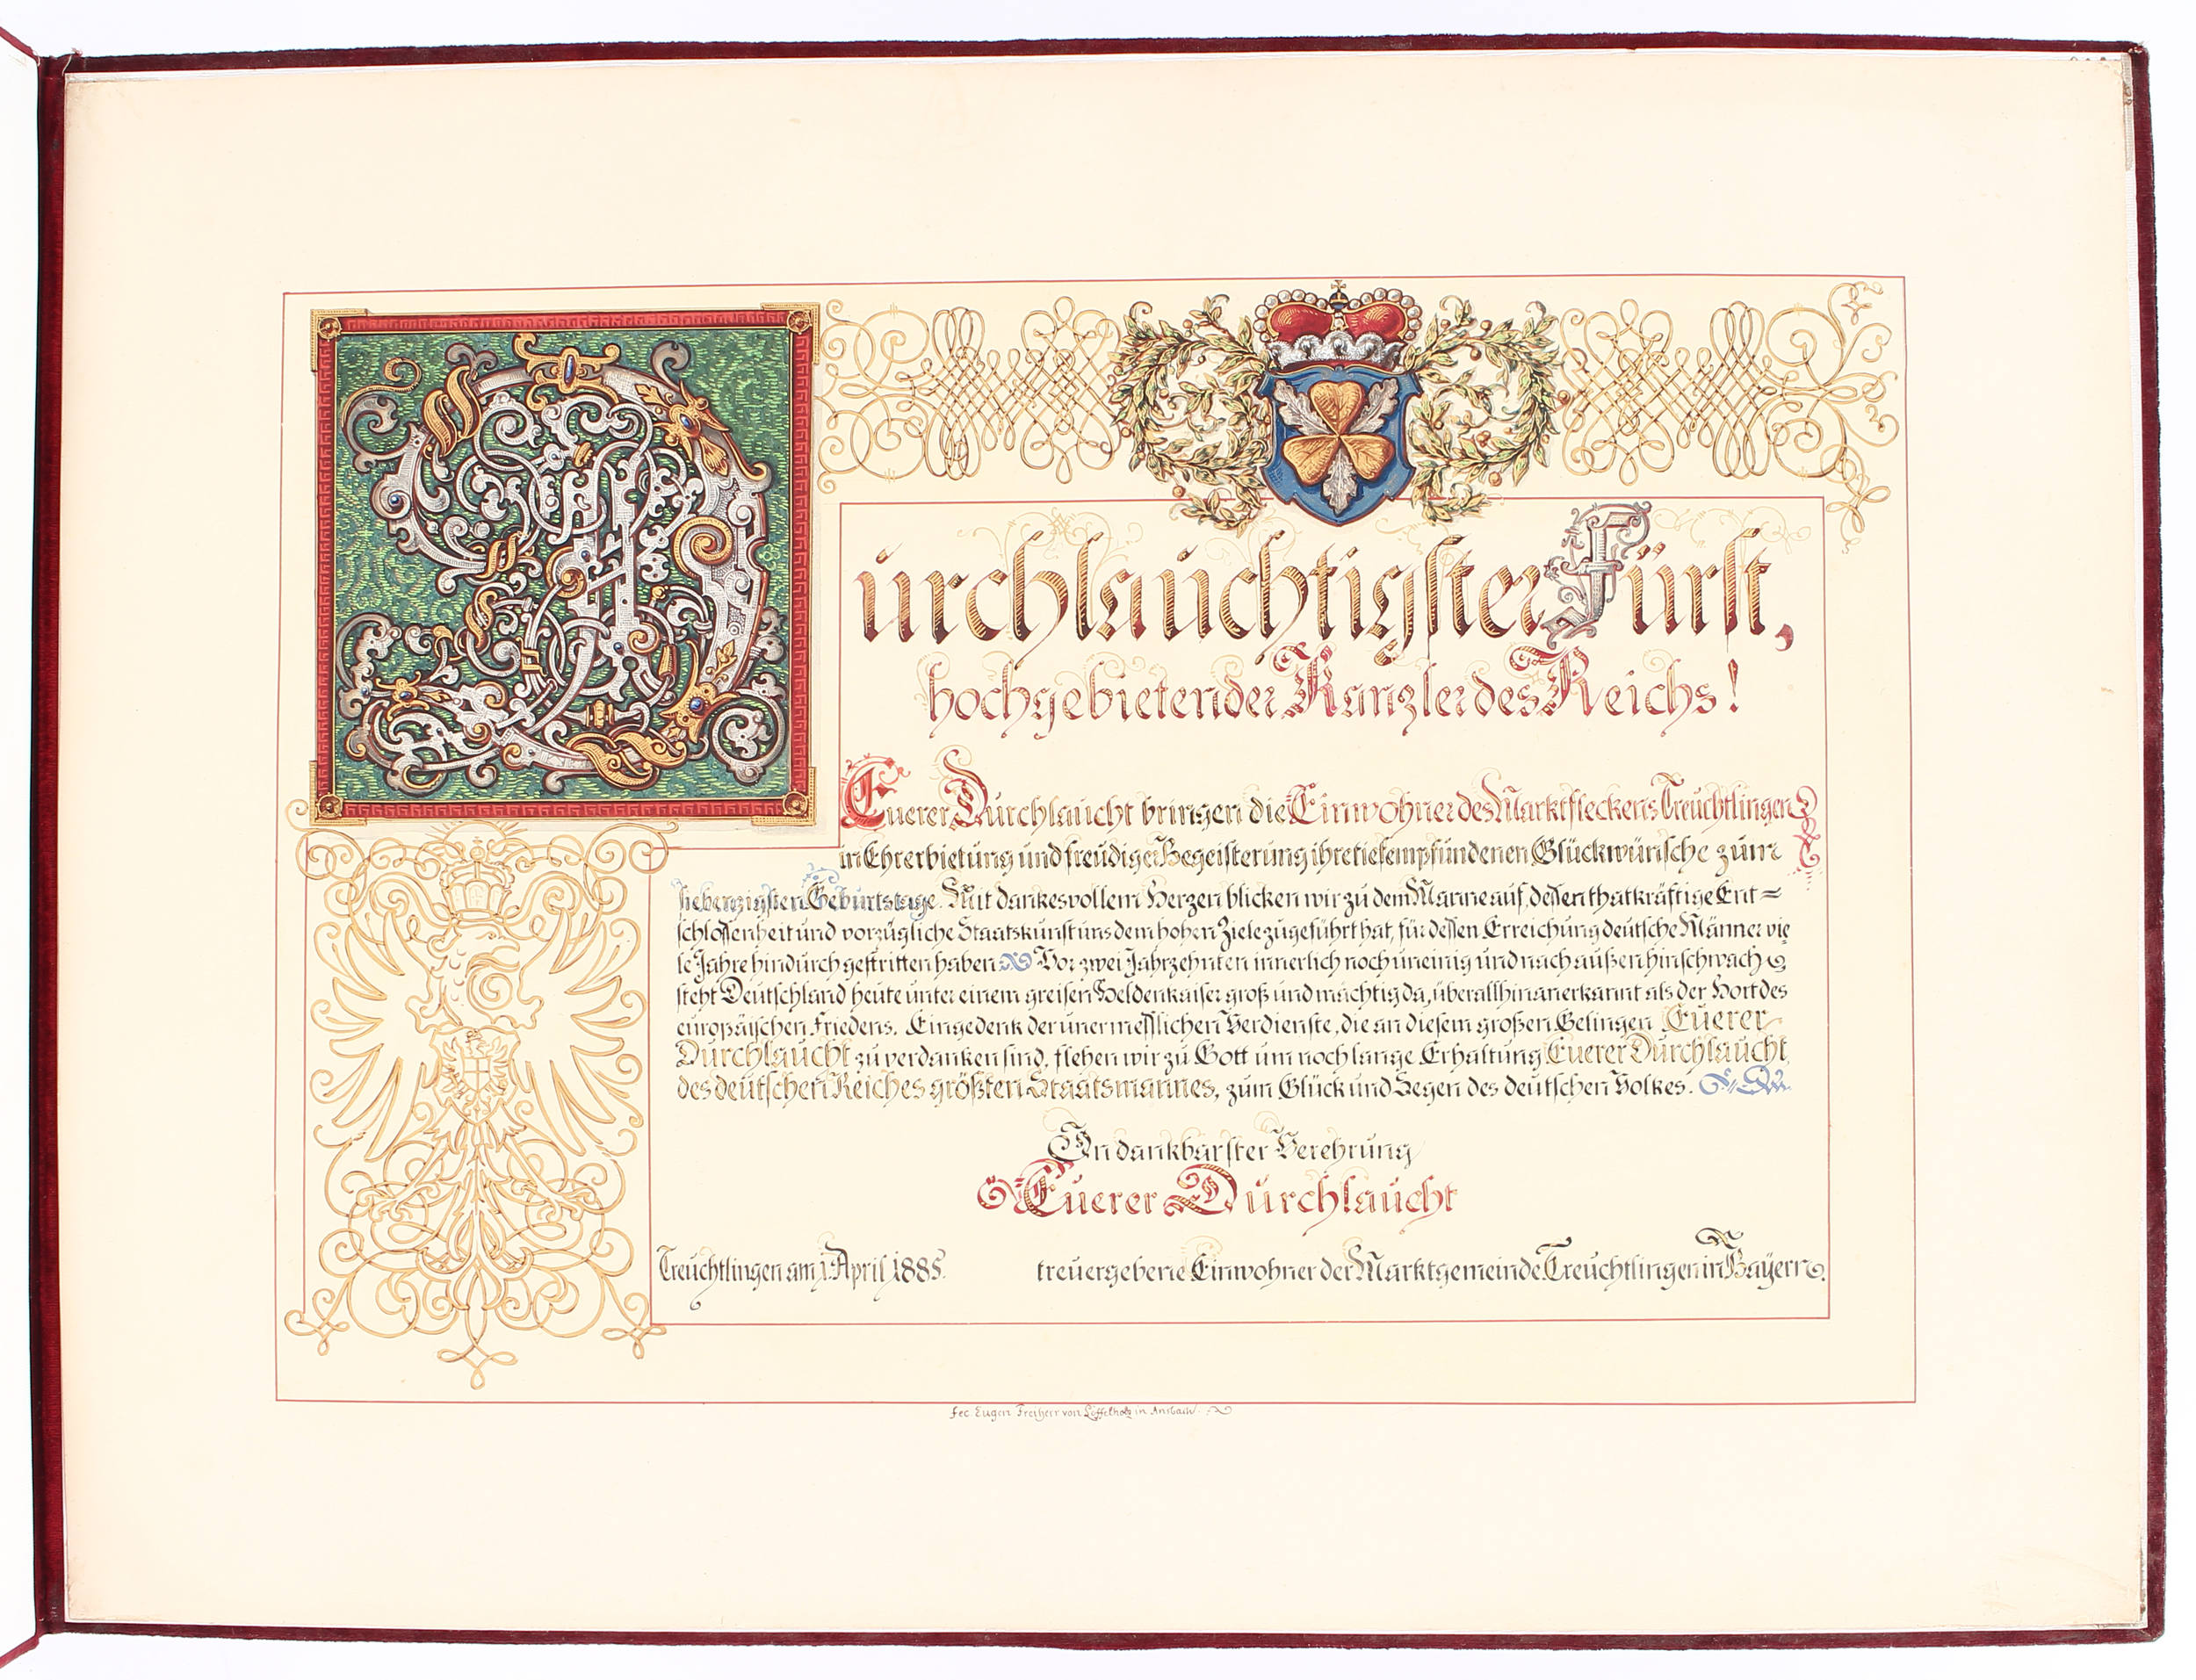 Durchlauchtigster Fürst,
hochgebietender Kanzler des Reichs!
Euerer Durchlaucht bringen die Einwohner des Marktfleckens Treuchtlingen
in Ehrerbietung und freudiger Begeisterung ihre tiefempfundenen Glückwünsche zum
siebenzigsten Geburtstage. Mit dankesvollem Herzen blicken wir zu dem Manne auf, dessen thatkräftige Ent=
schlossenheit und vorzügliche Staatskunst uns dem hohen Ziele zugeführt hat, für dessen Erreichung deutsche Männer vie
le Jahre hindurch gestritten haben. Vor zwei Jahrzehnten innerlich noch uneinig und nach außen hin schwach
steht Deutschland heute unter einem greisen Heldenkaiser groß und mächtig da, überallhin anerkannt als der Hort des
europäischen Friedens. Eingedenk der unermesslichen Verdienste, die an diesem großen Gelingen Euerer
Durchlaucht zu verdanken sind, flehen wir zu Gott um noch lange Erhaltung Euerer Durchlaucht,
des deutschen Reiches größten Staatsmannes, zum Glück und Segen des deutschen Volkes.
In dankbarster Verehrung
Euerer Durchlaucht
Treuchtlingen am 1. April 1885.
treuergebene Einwohner der Marktgemeinde Treuchtlingen in Bayern.
Fec. Eugen Freiherr von Löffelholz in Ansbach.